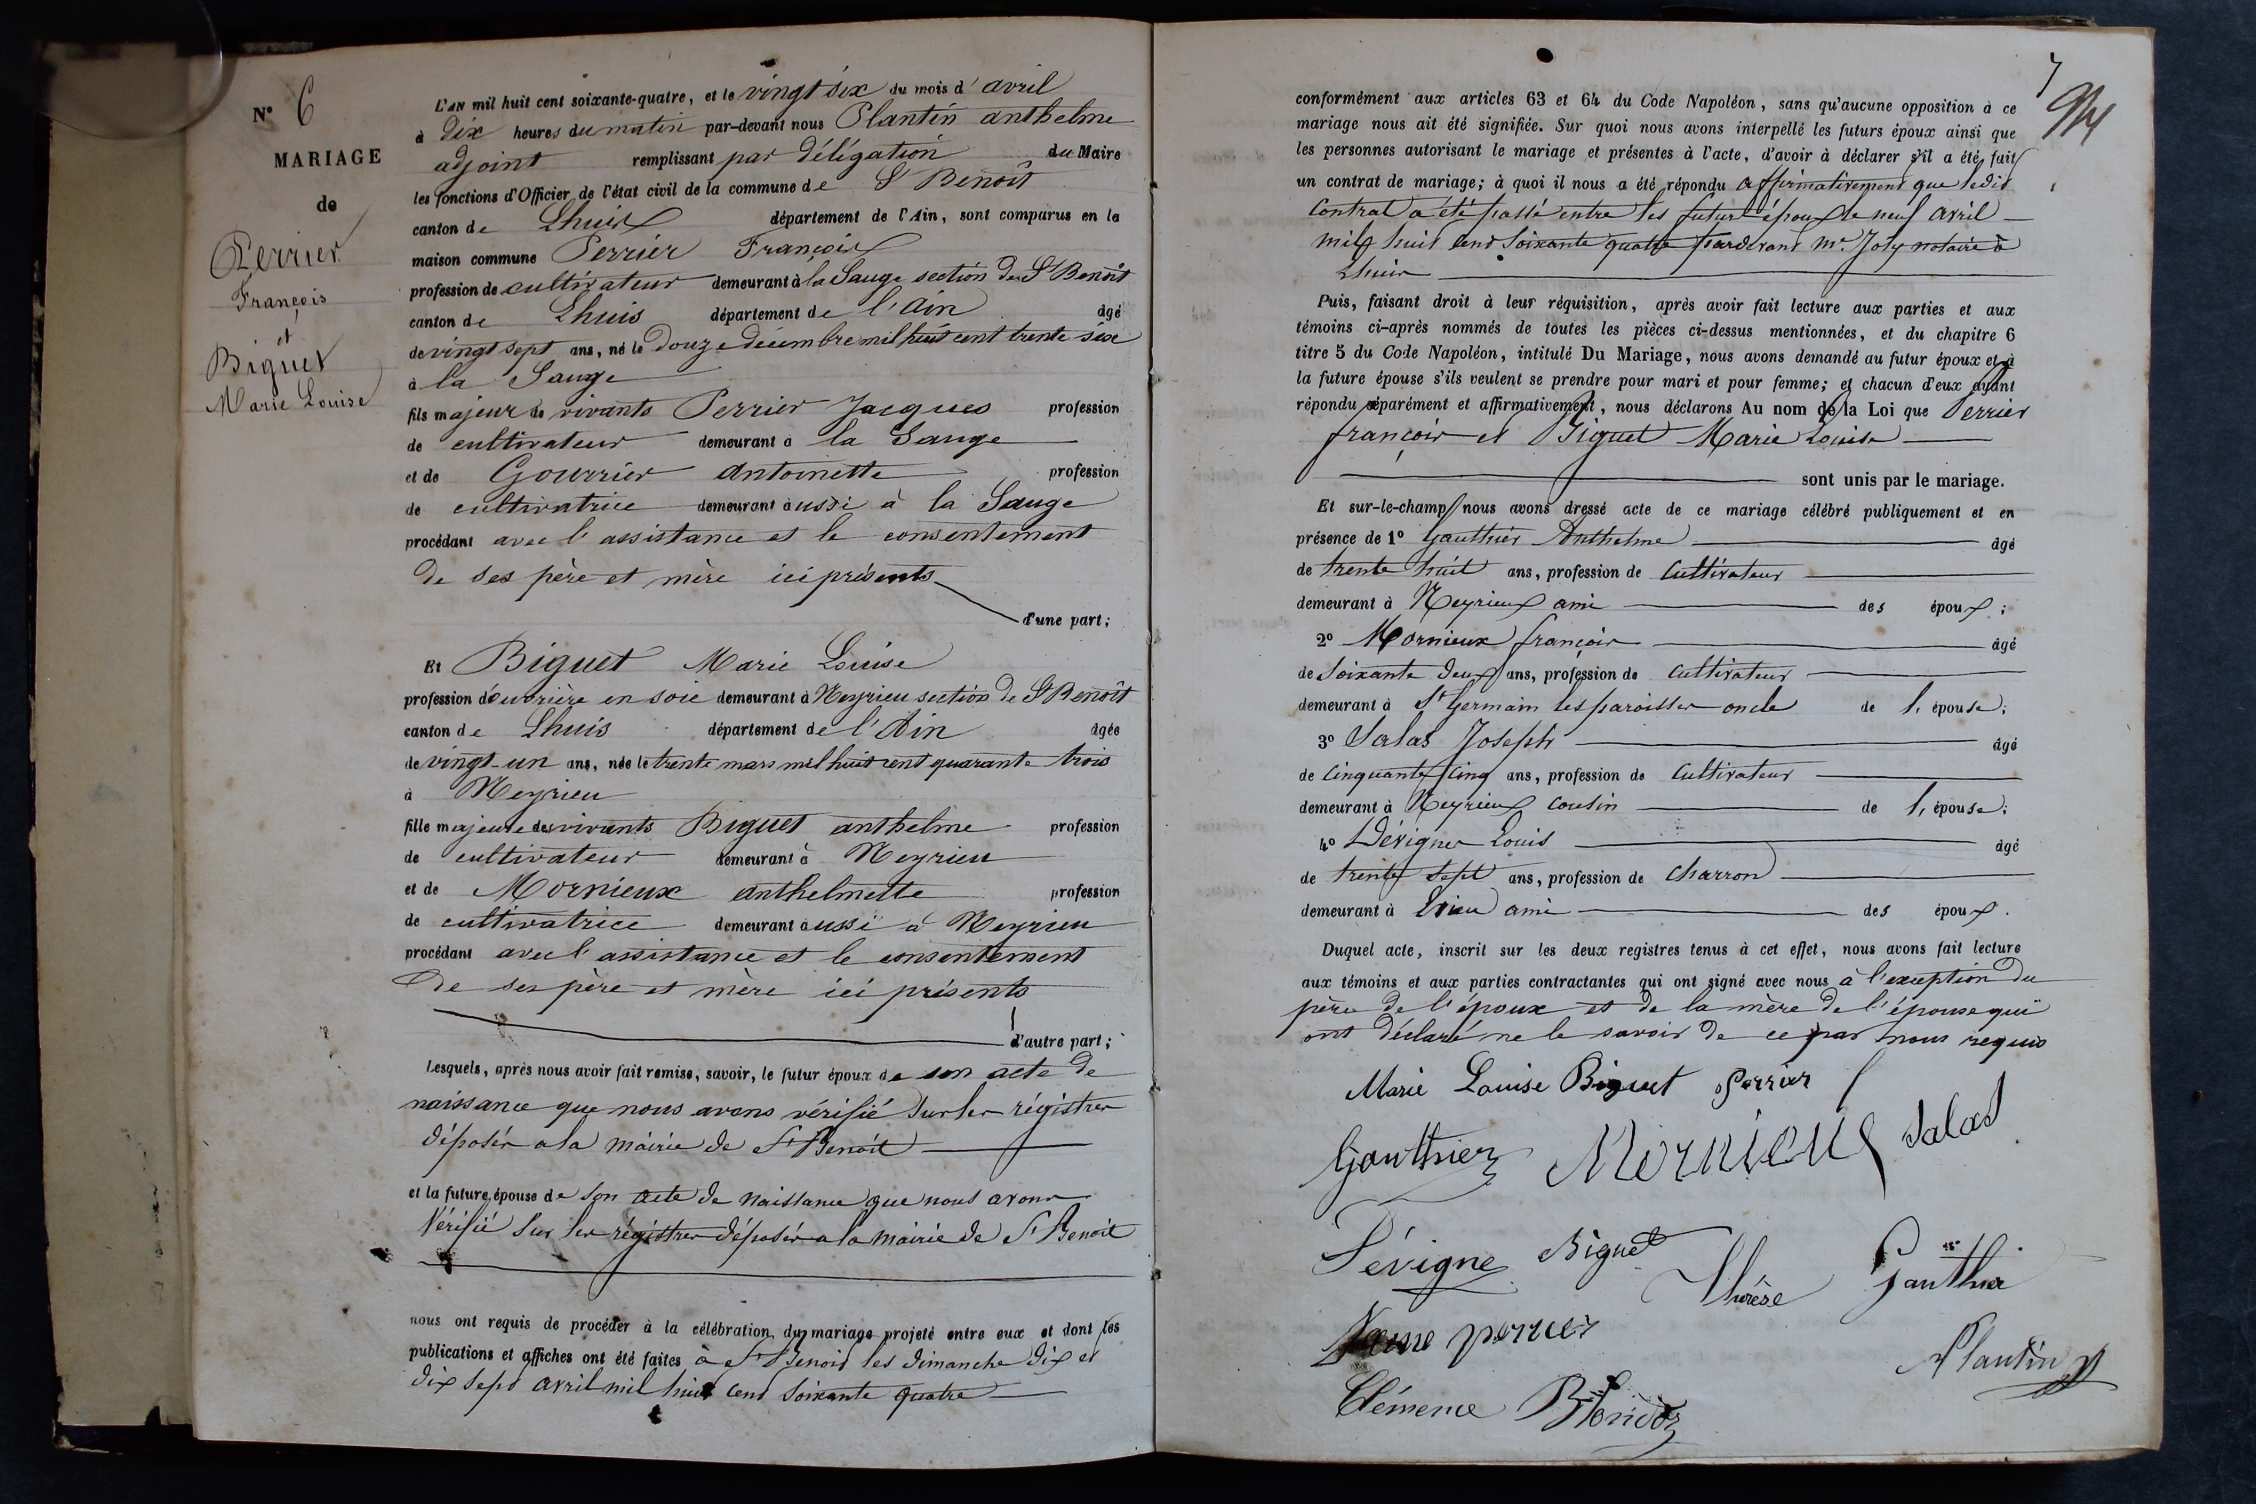 N° 6
MARIAGE
de
Perrier
François
et
Biguet
Marie Louise
L'AN mil huit cent soixante-quatre, et le vingt six du mois d'avril
à dix heures du matin par-devant nous Plantin anthelme
adjoint remplissant par délégation du Maire
les fonctions d'Officier de l'état civil de la commune de St Benoît
canton de Lhuis département de l'Ain, sont comparus en la
maison commune Perrier François
profession de cultivateur demeurant à la Sauge section de St Benoît
canton de Lhuis département de l'ain âgé
de vingt sept ans, né le douze décembre mil huit cent trente six
à la Sauge
fils majeur de vivants Perrier Jacques profession
de cultivateur demeurant à la Sauge
et de Gourrier antoinette profession
de cultivatrice demeurant aussi à la Sauge
procédant avec l'assistance et le consentement
de ses père et mère ici présents
d'une part;
Et Biguet Marie Louise
profession d'ouvrière en soie demeurant à Meyrieu section de St Benoît
canton de Lhuis département de l'Ain âgée
de vingt-un ans, née le trente mars mil huit cent quarante trois
à Meyrieu
fille majeure des vivants Biguet anthelme profession
de cultivateur demeurant à Meyrieu
et de Mornieux anthelmette profession
de cultivatrice demeurant aussi à Meyrieu
procédant avec l'assistance et le consentement
de ses père et mère ici présents
d'autre part;
Lesquels, après nous avoir fait remise, savoir, le futur époux de son acte de
naissance que nous avons vérifié sur les régistres
déposés a la mairie de St Benoit
et la future épouse de son acte de naissance que nous avons
vérifié sur les régistres déposés a la mairie de St Benoit
nous ont requis de procéder à la célébration du mariage projeté entre eux et dont les
publications et affiches ont été faites à St Benoit les dimanche dix et
dix sept avril mil huit cent soixante quatre
7
conformément aux articles 63 et 64 du Code Napoléon, sans qu'aucune opposition à ce
mariage nous ait été signifiée. Sur quoi nous avons interpellé les futurs époux ainsi que
les personnes autorisant le mariage et présentes à l'acte, d'avoir à déclarer s'il a été fait
un contrat de mariage; à quoi il nous a été répondu affirmativement que ledit
contrat a été passé entre les futur époux le neuf avril
mil huit cent soixante quatre pardevant mr. Joly notaire à
Lhuis
Puis, faisant droit à leur réquisition, après avoir fait lecture aux parties et aux
témoins ci-après nommés de toutes les pièces ci-dessus mentionnées, et du chapitre 6
titre 5 du Code Napoléon, intitulé Du Mariage, nous avons demandé au futur époux et à
la future épouse s'ils veulent se prendre pour mari et pour femme; et chacun d'eux ayant
répondu séparément et affirmativement, nous déclarons Au nom de la Loi que Perrier
françois et Biguet Marie Louise
sont unis par le mariage.
Et sur-le-champ nous avons dressé acte de ce mariage célébré publiquement et en
présence de 1° Gauthier Anthelme âgé
de trente huit ans, profession de cultivateur
demeurant à Meyrieux ami des époux;
2° Mornieux françois âgé
de soixante deux ans, profession de cultivateur
demeurant à St Germain les paroisses oncle de l'épouse;
3° Salas Joseph âgé
de cinquante cinq ans, profession de cultivateur
demeurant à Meyrieux cousin de l'épouse;
4° Dévigne Louis âgé
de trente sept ans, profession de charron
demeurant à Evieu ami des époux.
Duquel acte, inscrit sur les deux registres tenus à cet effet, nous avons fait lecture
aux témoins et aux parties contractantes qui ont signé avec nous à l'exception du
père de l'époux et de la mère de l'épouse qui
ont déclaré ne le savoir de ce par nous requis
Marie Louise Biguet Perrier
Gauthier Mornieux Salas
Dévigne Biguet Thérèse Gauthier
perrier
Plantin
Clémence